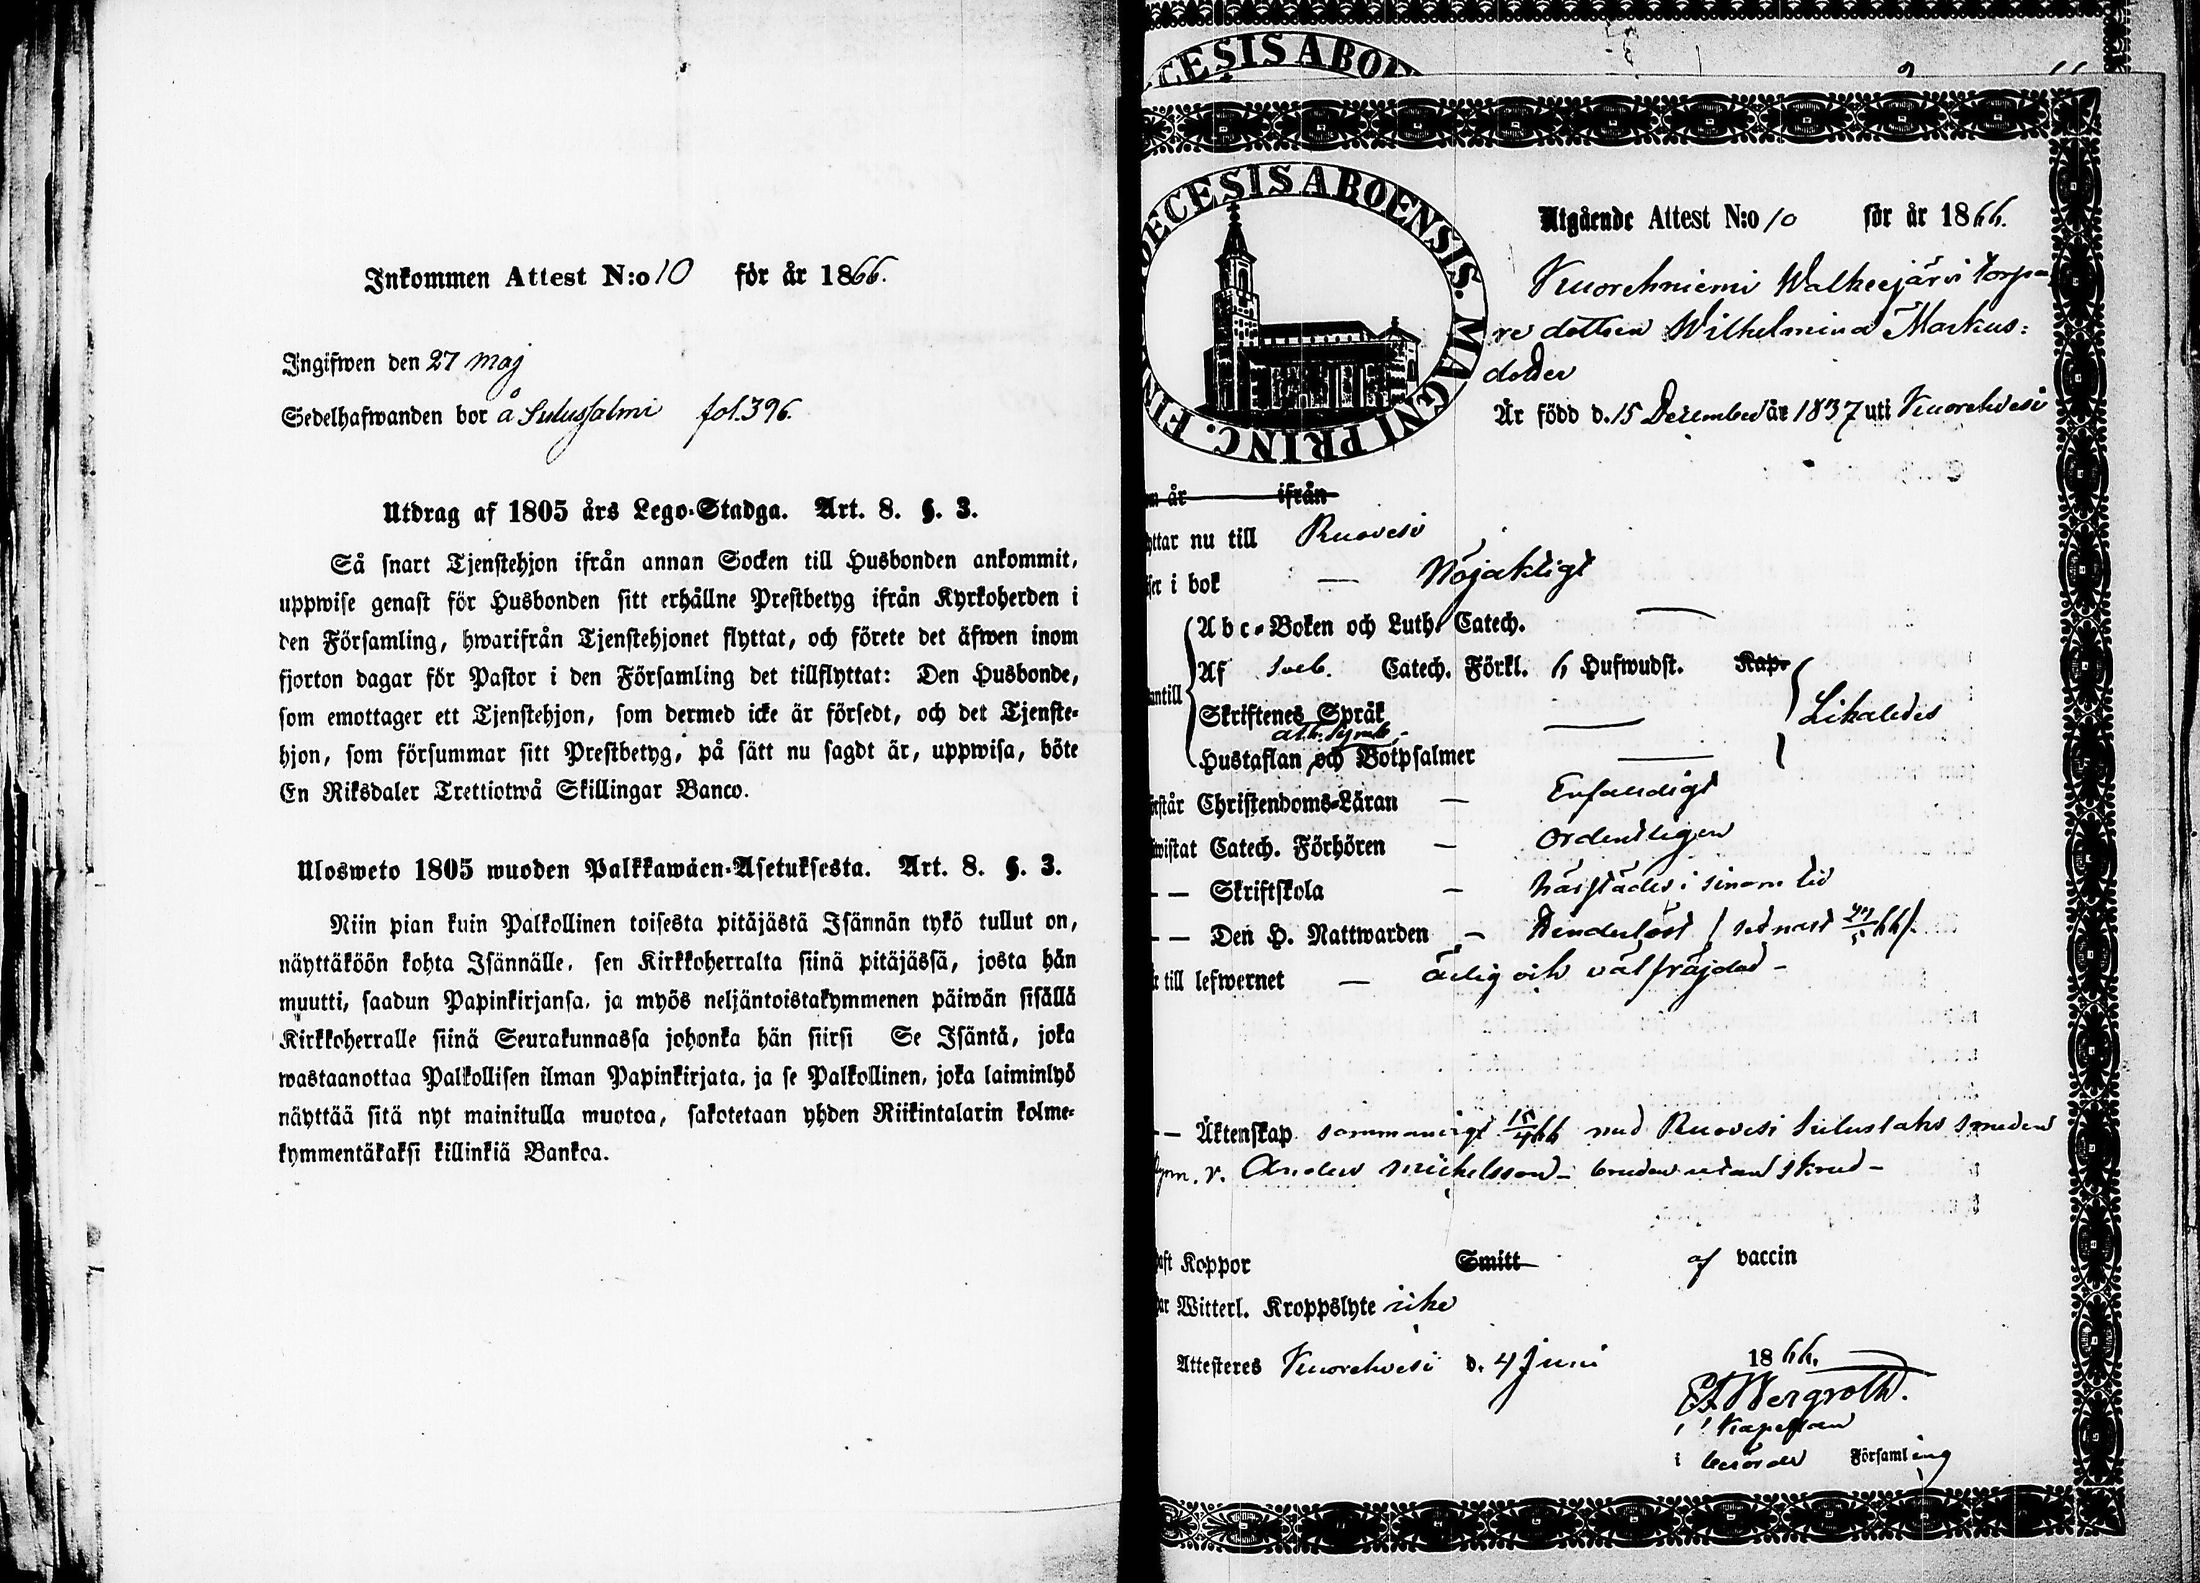 Inkommen Attest N:o 10 för år 1866.
Ingifwen den 27 Maj
Sedelhafwanden bor å Sulussalmi fol. 396.
Utdrag af 1805 års Lego-Stadga. Art. 8. §. 3.
Så snart Tjenstehjon ifrån annan Socken till Husbonden ankommit,
uppwise genast för Husbonden sitt erhållne Prestbetyg ifrån Kyrkoherden i
den Församling, hwarifrån Tjenstehjonet flyttat, och förete det äfwen inom
fjorton dagar för Pastor i den Församling det tillflyttat: Den Husbonde,
som emottager ett Tjenstehjon, som dermed icke är försedt, och det Tjenste-
hjon, som försummar sitt Prestbetyg, på sätt nu sagdt är, uppwisa, böte
En Riksdaler Trettiotwå Skillingar Banco.
Ulosweto 1805 wuoden Palkkawäen-Asetuksesta. Art. 8. §. 3.
Niin pian kuin Palkollinen toisesta pitäjästä Isännän tykö tullut on,
näyttäköön kohta Isännälle, sen Kirkkoherralta siinä pitäjässä, josta hän
muutti, saadun Papinkirjansa, ja myös neljäntoistakymmenen päiwän sisällä
Kirkkoherralle siinä Seurakunnassa johonka hän siirsi Se Isäntä, joka
wastaanottaa Palkollisen ilman Papinkirjata, ja se Palkollinen, joka laiminlyö
näyttää sitä nyt mainitulla muotoa, sakotetaan yhden Riikintalarin kolme-
kymmentäkaksi killinkiä Bankoa.
CESIS ABOEN
DECESIS ABOENSIS. MAGNI PRINC. FIN
Utgående Attest N:o 10 för år 1866.
Kuorehniemi Walkeejärvi torpa-
re dottren Wilhelmina Markus-
dotter
Är född d. 15 December år 1837 uti Kuorehvesi
år ifrån
yttar nu till Ruovesi
ser i bok — Nöjaktigt
Abc-Boken och Luth. Catech. —
Af Sveb. Catech. Förkl. 6 Hufwudst. Kap.
antill
Skriftenes Språk — Likaledes
ath. symb.
Hustaflan och Botpsalmer —
rstår Christendoms-Läran — Enfaldigt
wistat Catech. Förhören — Ordentligen
— — Skriftskola — härstädes i sinom tid
— — Den H. Nattwarden — Hinderlöst / sednast 27/5 66/.
till lefwernet — ärlig och välfräjdad —
— — Äktenskap sammanvigt 15/4 66 med Ruovesi Suluslahs smeden
v. Anders Michelsson — bruden utan skrud —
aft Koppor Smitt af vaccin
ar Witterl. Kroppslyte icke
Attesteres Kuorehvesi d. 4 Juni 1866.
Bergroth.
Kapellan
i berörde Församling